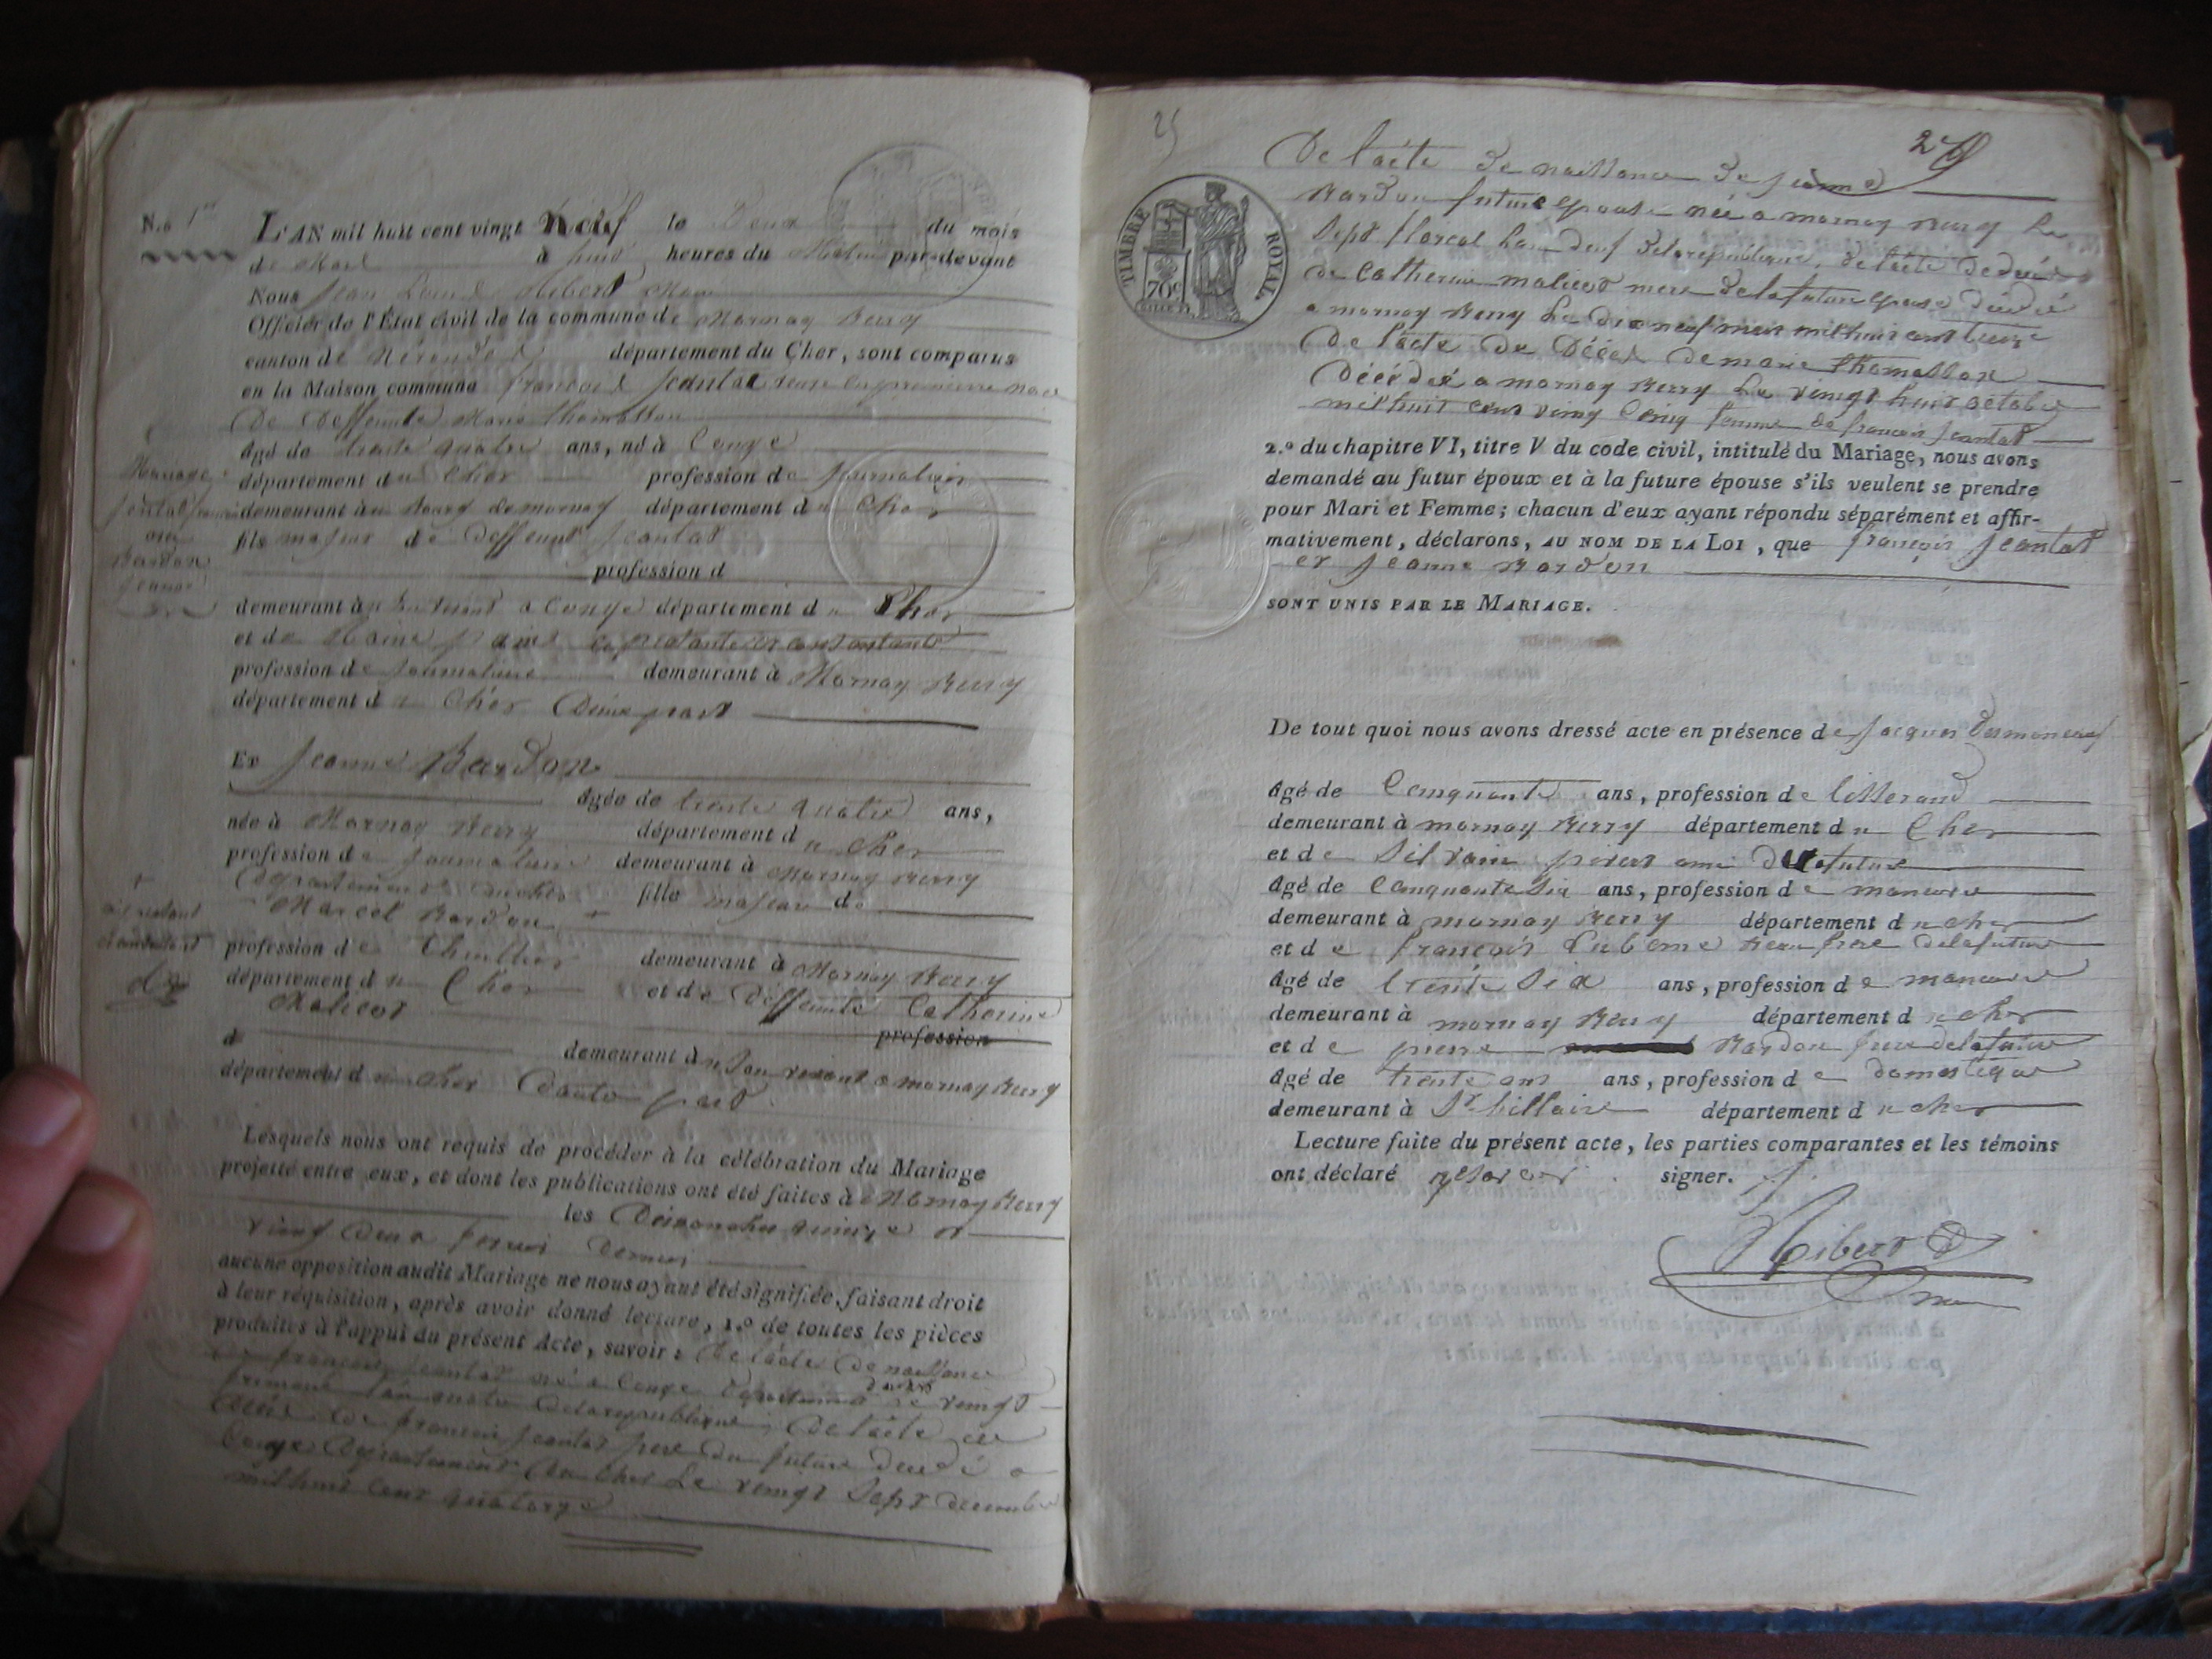 N.o 1er
L'AN mil huit cent vingt Neuf le Deux du mois
de Mars à huit heures du Matin par-devant
Nous Jean Louis Hibert Maire
Officier de l'État civil de la commune de Mornay Berry
canton de Nérondes département du Cher, sont comparus
en la Maison commune francois Jeantat
De Deffunte Marie thomasson
âgé de trente quatre ans, né à
département du Cher profession de Journalier
demeurant au Bourg de mornay département du Cher
fils majeur de deffunt Jeantat
profession d
demeurant à département du Cher
et de presante et consentante
profession de Journaliere demeurant à Mornay Berry
département du Cher D'une part
Mariage
Jeantat francois
ou
Bardon
Jeanne
Et Jeanne Bardon
âgée de trente quatre ans,
née à Mornay Berry département du Cher
profession de Journaliere demeurant à Mornay Berry
département du cher fille majeur de
Marcel Bardon +
+
profession de demeurant à Mornay Berry
département du Cher et de deffunte Catherine
Malicot
d profession
demeurant à de Son vivant a mornay Berry
département du cher D'autre part
Lesquels nous ont requis de procéder à la célébration du Mariage
projetté entre eux, et dont les publications ont été faites à Mornay Berry
les Dimanches quinze et
vingt deux fevrier Dernier
aucune opposition audit Mariage ne nous ayant été signifiée, faisant droit
à leur réquisition, après avoir donné lecture, 1.o de toutes les pièces
produites à l'appui du présent Acte, savoir : De l'acte De naissance
de francois Jeantat né a departement du cher le vingt
frimaire l'an quatre de la republique, De l'acte de
décé de francois Jeantat pere du futur décédé a
Departement du cher Le vingt Sept decembre
mil huit cent quatorze
25
TIMBRE ROYAL
70c
De l'acte de naissance de jeanne
Bardon future epouse née a mornay Berry le
Sept floreal l'an neuf de la republique, de l'acte de décés
de Catherine malicot mere de la future epouse décédé
a mornay Berry Le dix neuf mars mil huit cent treize
De l'acte De Décés De marie thomasson
Décédé a mornay Berry Le vingt huit octobre
mil huit cent vingt Cinq femme de francois Jeantat
2.o du chapitre VI, titre V du code civil, intitulé du Mariage, nous avons
demandé au futur époux et à la future épouse s'ils veulent se prendre
pour Mari et Femme; chacun d'eux ayant répondu séparément et affir-
mativement, déclarons, AU NOM DE LA LOI, que françois Jeantat
et Jeanne Bardon
SONT UNIS PAR LE MARIAGE.
De tout quoi nous avons dressé acte en présence de Jacques
âgé de Cinquante ans, profession de tisserand
demeurant à mornay Berry département du Cher
et de Silvain ami De la future
âgé de Cinquante Six ans, profession de maneuvre
demeurant à mornay Berry département du cher
et de françois beau frere de la future
âgé de trente Six ans, profession de maneuvre
demeurant à mornay Berry département du cher
et de pierre Bardon frere de la future
âgé de trente ans ans, profession de domestique
demeurant à St hillaire département du cher
Lecture faite du présent acte, les parties comparantes et les témoins
ont déclaré ne savoir signer.
Hibert